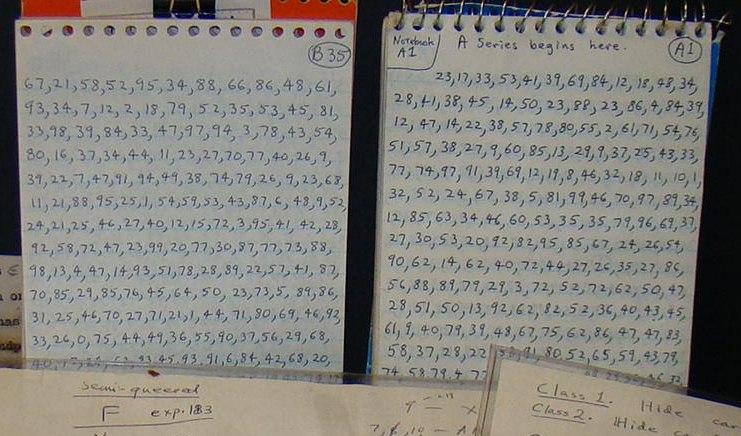 B 35
67,21,58,52,95,34,88, 66,86,48,61,
93,34,7,12,2,18,79, 52,35,53,45,81,
33,98,39,84,33,47,97,94, 3,78,43,54,
80,16,37,34,44, 11,23,27,70,77,40,26,9,
39,22,7,47,91,94,49,38,74,79,26,9,23,68,
11,21,88,95,25,1,54,59,53,43,87,6,48,9,52
24,21,25,46,27,40,12,15,72,3,95,41,42,28
92,58,72,47,23,99,20,77,30,87,77,73,88,
98,13,4,47,14,93,51,78,28,89,22,57,41,87,
70,85,29,85,76,45,64,50, 23,73,5, 89,86,
31,25,46,70,27,71,21,1,44,71,80,69,46,92,
33,26,0,75,44,49,36,55,90,37,56,29,68,
45,93,91,6,84,42,68,20,
Notebook
A1
A Series begins here.
A1
23,17,33,53,41,39,69,84,12,18,48,34,
28,41,38,45,14,50,23,88,23,86,4,84,39,
12,47,14,22,38,57,78,80,55,2,61,71,54,76,
51,57,38,27,9,60,85,13,29,9,37,25,43,33,
77,74,97,91,39,69,12,19,8,46,32,18,11,10,1,
32,52,24,67,38,5,81,99,46,70,97,89,34,
12,85,63,34,46,60,53,35,35,79,96,69,37,
27,30,53,20,92,82,95,85,67,24,26,54,
90,62,14,62,40,72,44,27,26,35,27,86,
56,88,89,79,29,3,72,52,72,62,50,47,
28,51,50,13,92,62,82,52,36,40,43,45,
61,9,40,79,39,48,67,75,62,86,47,47,83,
58,37,28,22 91,80,52,65,59,43,79,
74,58,79,4,77
semi-queered
F exp. 183
Class 1. Hide car
Class 2. Hide ca